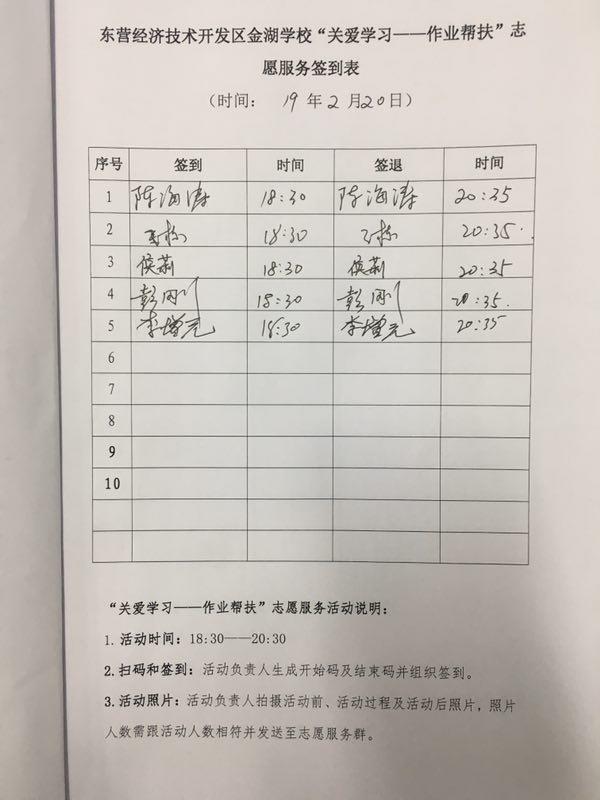 东营经济技术开发区金湖学校“关爱学习——作业帮扶”志
愿服务签到表
（时间： 19 年 2 月 20 日）
序号 签到 时间 签退 时间
1 陈海涛 18:30 陈海涛 20:35
2 18:30 20:35.
3 侯莉 18:30 侯莉 20:35
4 彭刚 18:30 彭刚 20:35.
5 李增元 18:30 李增元 20:35
6
7
8
9
10
“关爱学习——作业帮扶”志愿服务活动说明：
1. 活动时间：18:30——20:30
2. 扫码和签到：活动负责人生成开始码及结束码并组织签到。
3. 活动照片：活动负责人拍摄活动前、活动过程及活动后照片，照片
人数需跟活动人数相符并发送至志愿服务群。